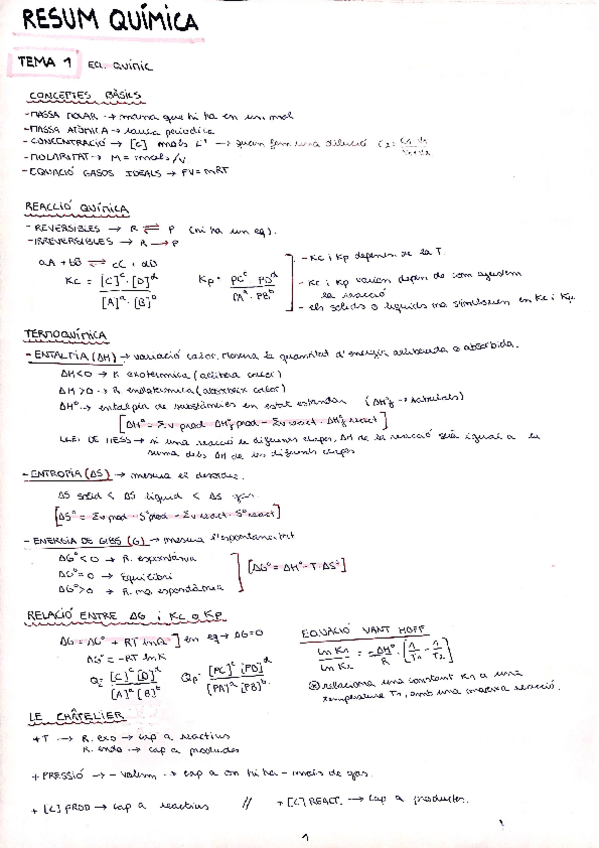 RESUM QUÍMICA
TEMA 1 EQ. QUÍMIC
CONCEPTES BÀSICS
- MASSA MOLAR → massa que hi ha en un mol
- MASSA ATÒMICA → taula periòdica
- CONCENTRACIÓ → [C] mols L⁻¹ → quan fem una dilució
- MOLARITAT → M = mols/V
- EQUACIÓ GASOS IDEALS → PV=nRT
REACCIÓ QUÍMICA
- REVERSIBLES → R ⇌ P (hi ha un eq).
- IRREVERSIBLES → R → P
aA + bB ⇌ cC + dD
Kc = [C]ᶜ·[D]ᵈ / [A]ᵃ·[B]ᵇ
Kp = PCᶜ PDᵈ / PAᵃ·PBᵇ
- Kc i Kp depenen de la T.
- Kc i Kp varien depen de com ajustem
la reacció
- els sòlids o líquids no s'inclouen en Kc i Kp.
TERMOQUÍMICA
- ENTALPIA (ΔH) → variació calor. Mesura la quantitat d'energia alliberada o absorbida.
ΔH<0 → R. exotèrmica (allibera calor)
ΔH>0 → R. endotèrmica (absorbeix calor)
ΔH° → entalpia de substàncies en estat estàndar (ΔH°f →
[ΔH° = Σν prod · ΔH°f prod - Σν react · ΔH°f react]
LLEI DE HESS → si una reacció te diferents etapes, ΔH de la reacció serà igual a la
suma dels ΔH de les diferents etapes
- ENTROPIA (ΔS) → mesura el desordre.
ΔS sòlid < ΔS líquid < ΔS gas
[ΔS° = Σν prod · S° prod - Σν react · S° react]
- ENERGIA DE GIBS (G) → mesura l'espontaneïtat
ΔG°<0 → R. espontània
ΔG°=0 → Equilibri
ΔG°>0 → R. no espontània
[ΔG° = ΔH° - T·ΔS°]
RELACIÓ ENTRE ΔG i Kc o Kp
ΔG = ΔG° + RT lnQ] en eq → ΔG=0
ΔG° = -RT lnK
Q = [C]ᶜ [D]ᵈ / [A]ᵃ [B]ᵇ
Qp = [PC]ᶜ [PD]ᵈ / [PA]ᵃ [PB]ᵇ
EQUACIÓ VANT HOFF
ln K1 / ln K2 = -ΔH° / R · [1/T1 - 1/T2]
* relaciona una constant K1 a una
temperatura T1, amb una mateixa reacció.
LE CHÂTELIER
+T → R. exo → cap a reactius
R. endo → cap a productes
+ PRESSIÓ → - volum → cap a on hi ha - mols de gas.
+ [C] PROD → cap a reactius // + [C] REACT. → cap a productes.
1